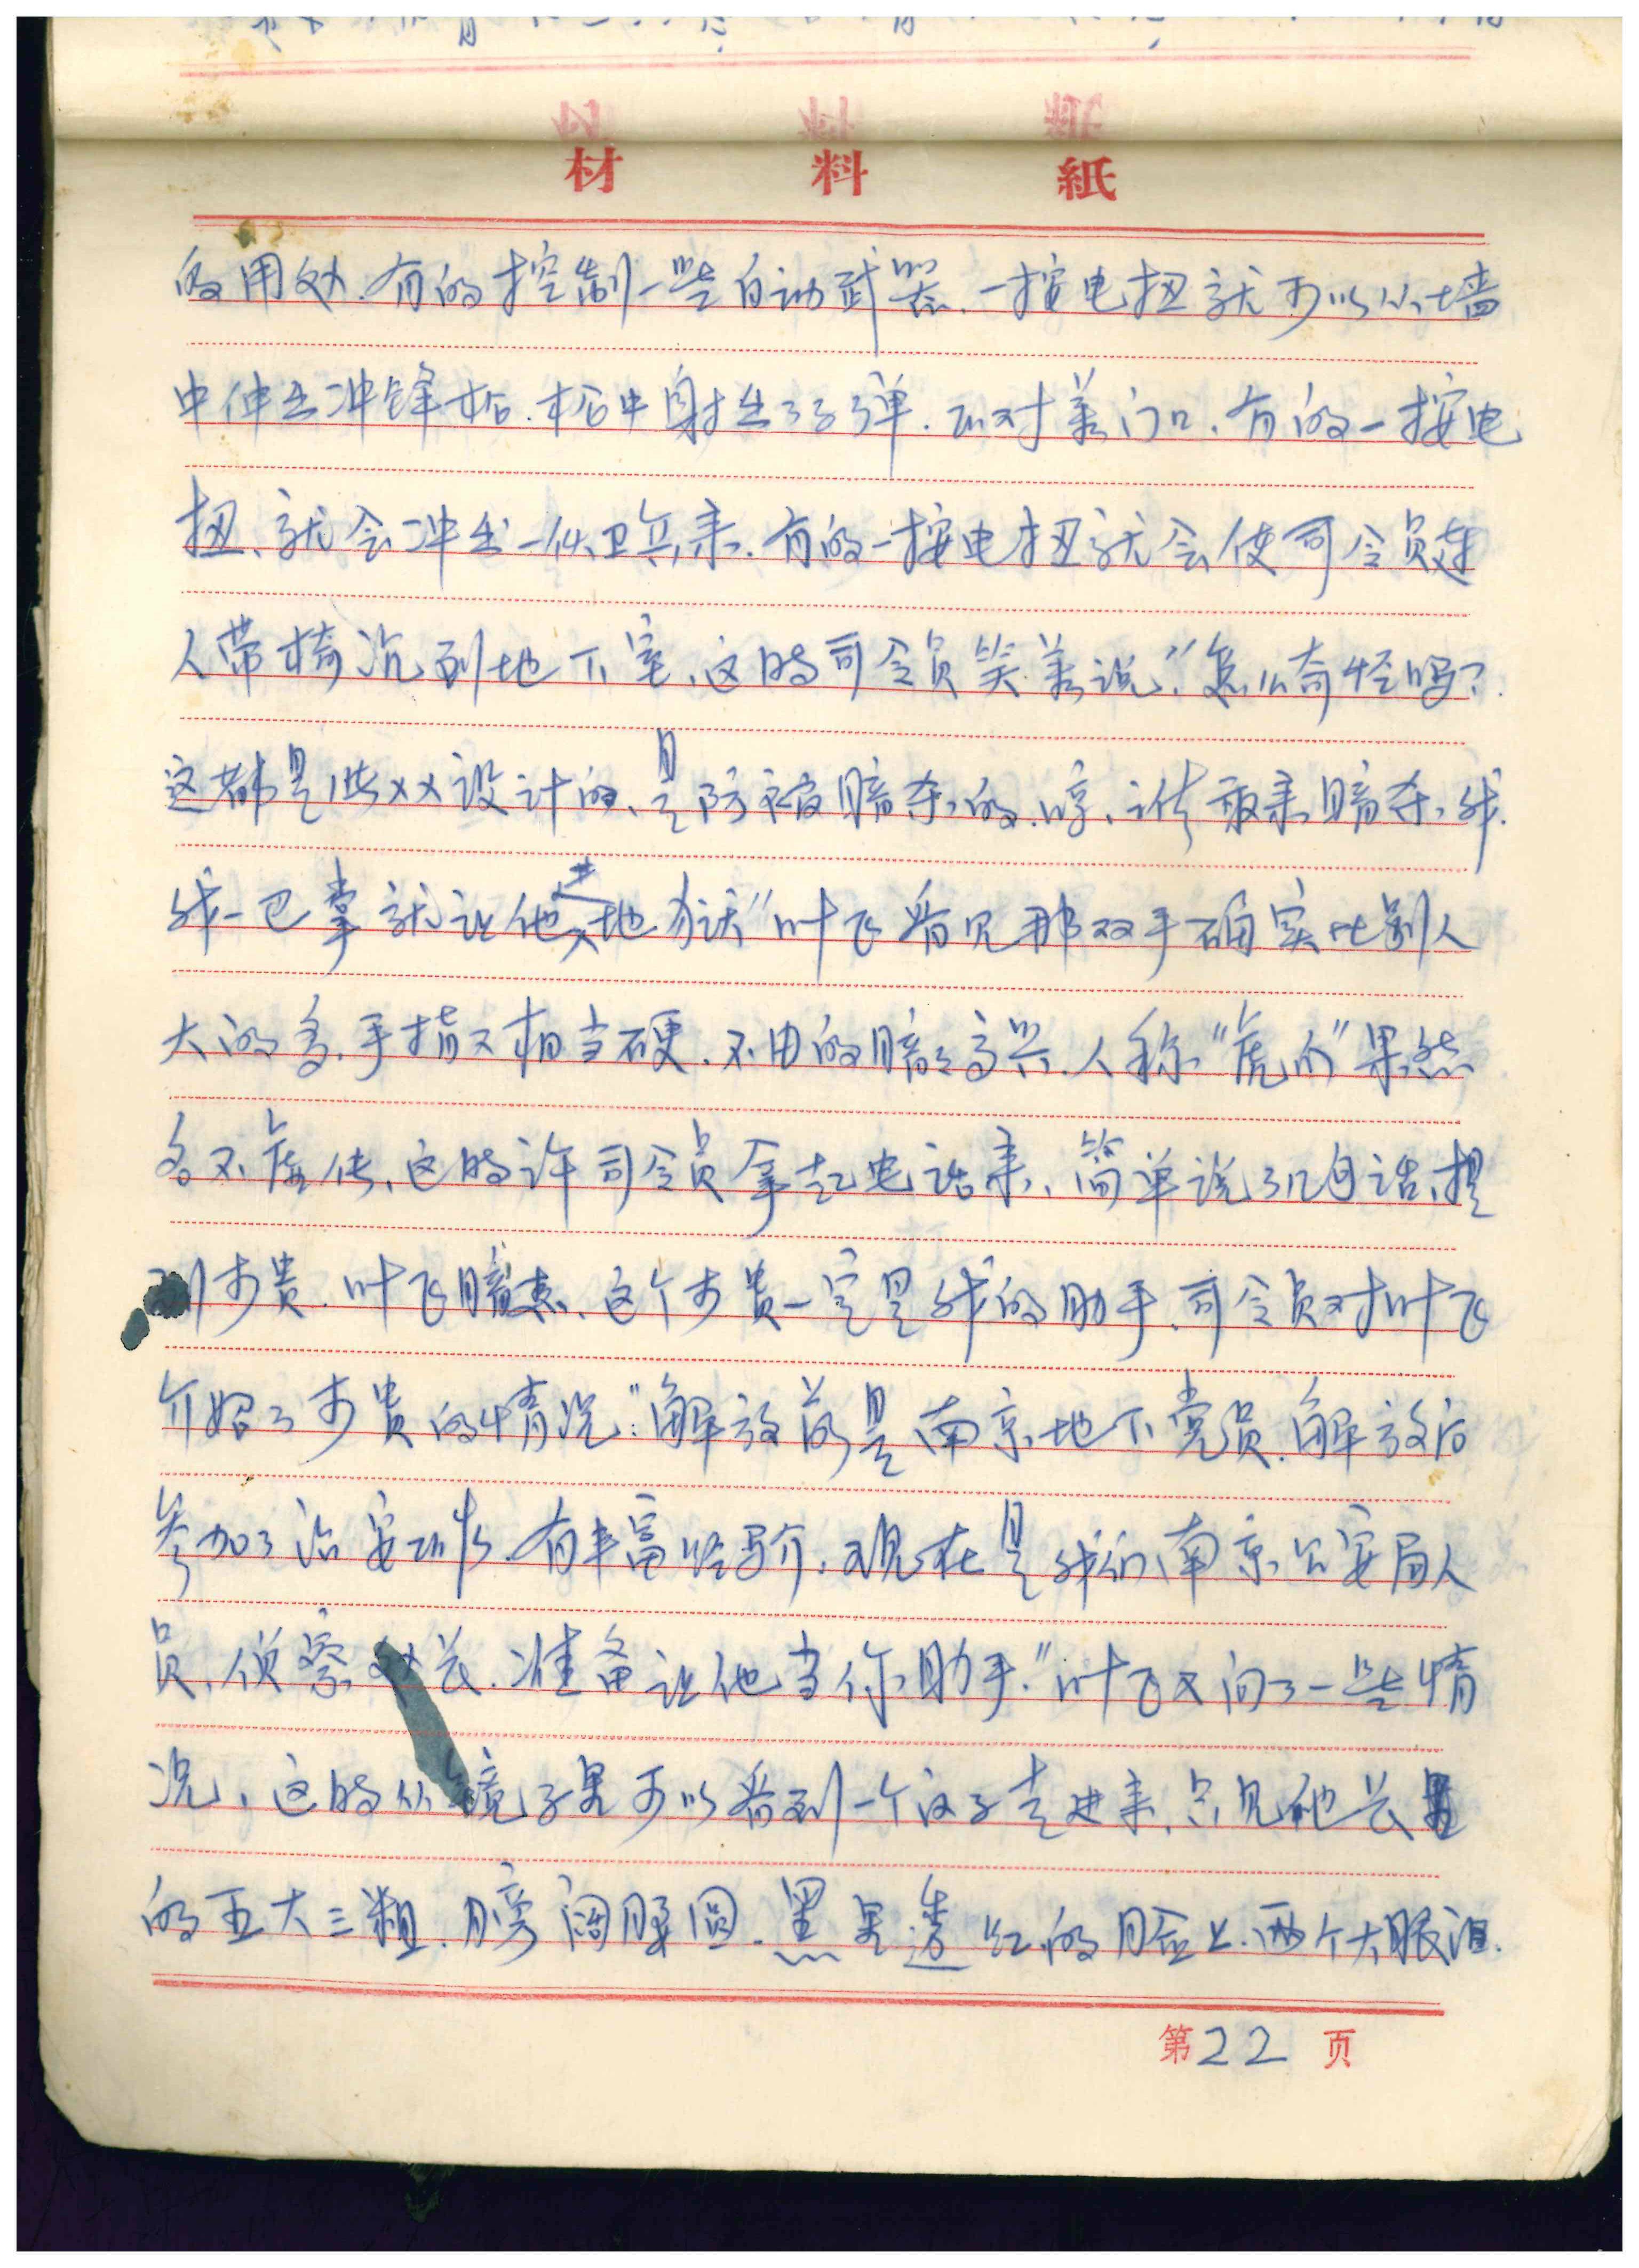 材料紙
的用处.有的控制一些自动武器.一按电扭就可以从墙
中伸出冲锋枪.枪中射出了子弹.正对着门口.有的一按电
扭、就会冲出一伙卫兵来.有的一按电扭就会使司令员连
人带椅沉到地下室、这时司令员笑着说:“怎么奇怪吗?
这都是些××设计的、是防被暗杀的.哼、谁敢来暗杀我.
我一巴掌就让他进地狱”叶飞看见那双手确实比别人
大的多.手指又相当硬.不由的暗暗高兴.人称“虎爪”果然
名不虚传、这时许司令员拿起电话来、简单说了几句话、提
到步贵.叶飞暗想、这个步贵一定是我的助手.司令员对叶飞
介绍了步贵的情况:“解放前是南京地下党员.解放后
参加了治安工作.有丰富经验、现在是我们南京公安局人
员、侦察××长.准备让他当你助手.”叶飞又问了一些情
况、这时从镜子里可以看到一个汉子走进来、只见他长
的五大三粗.膀阔腰圆.黑里透红的脸上.两个大眼泪.
第22页